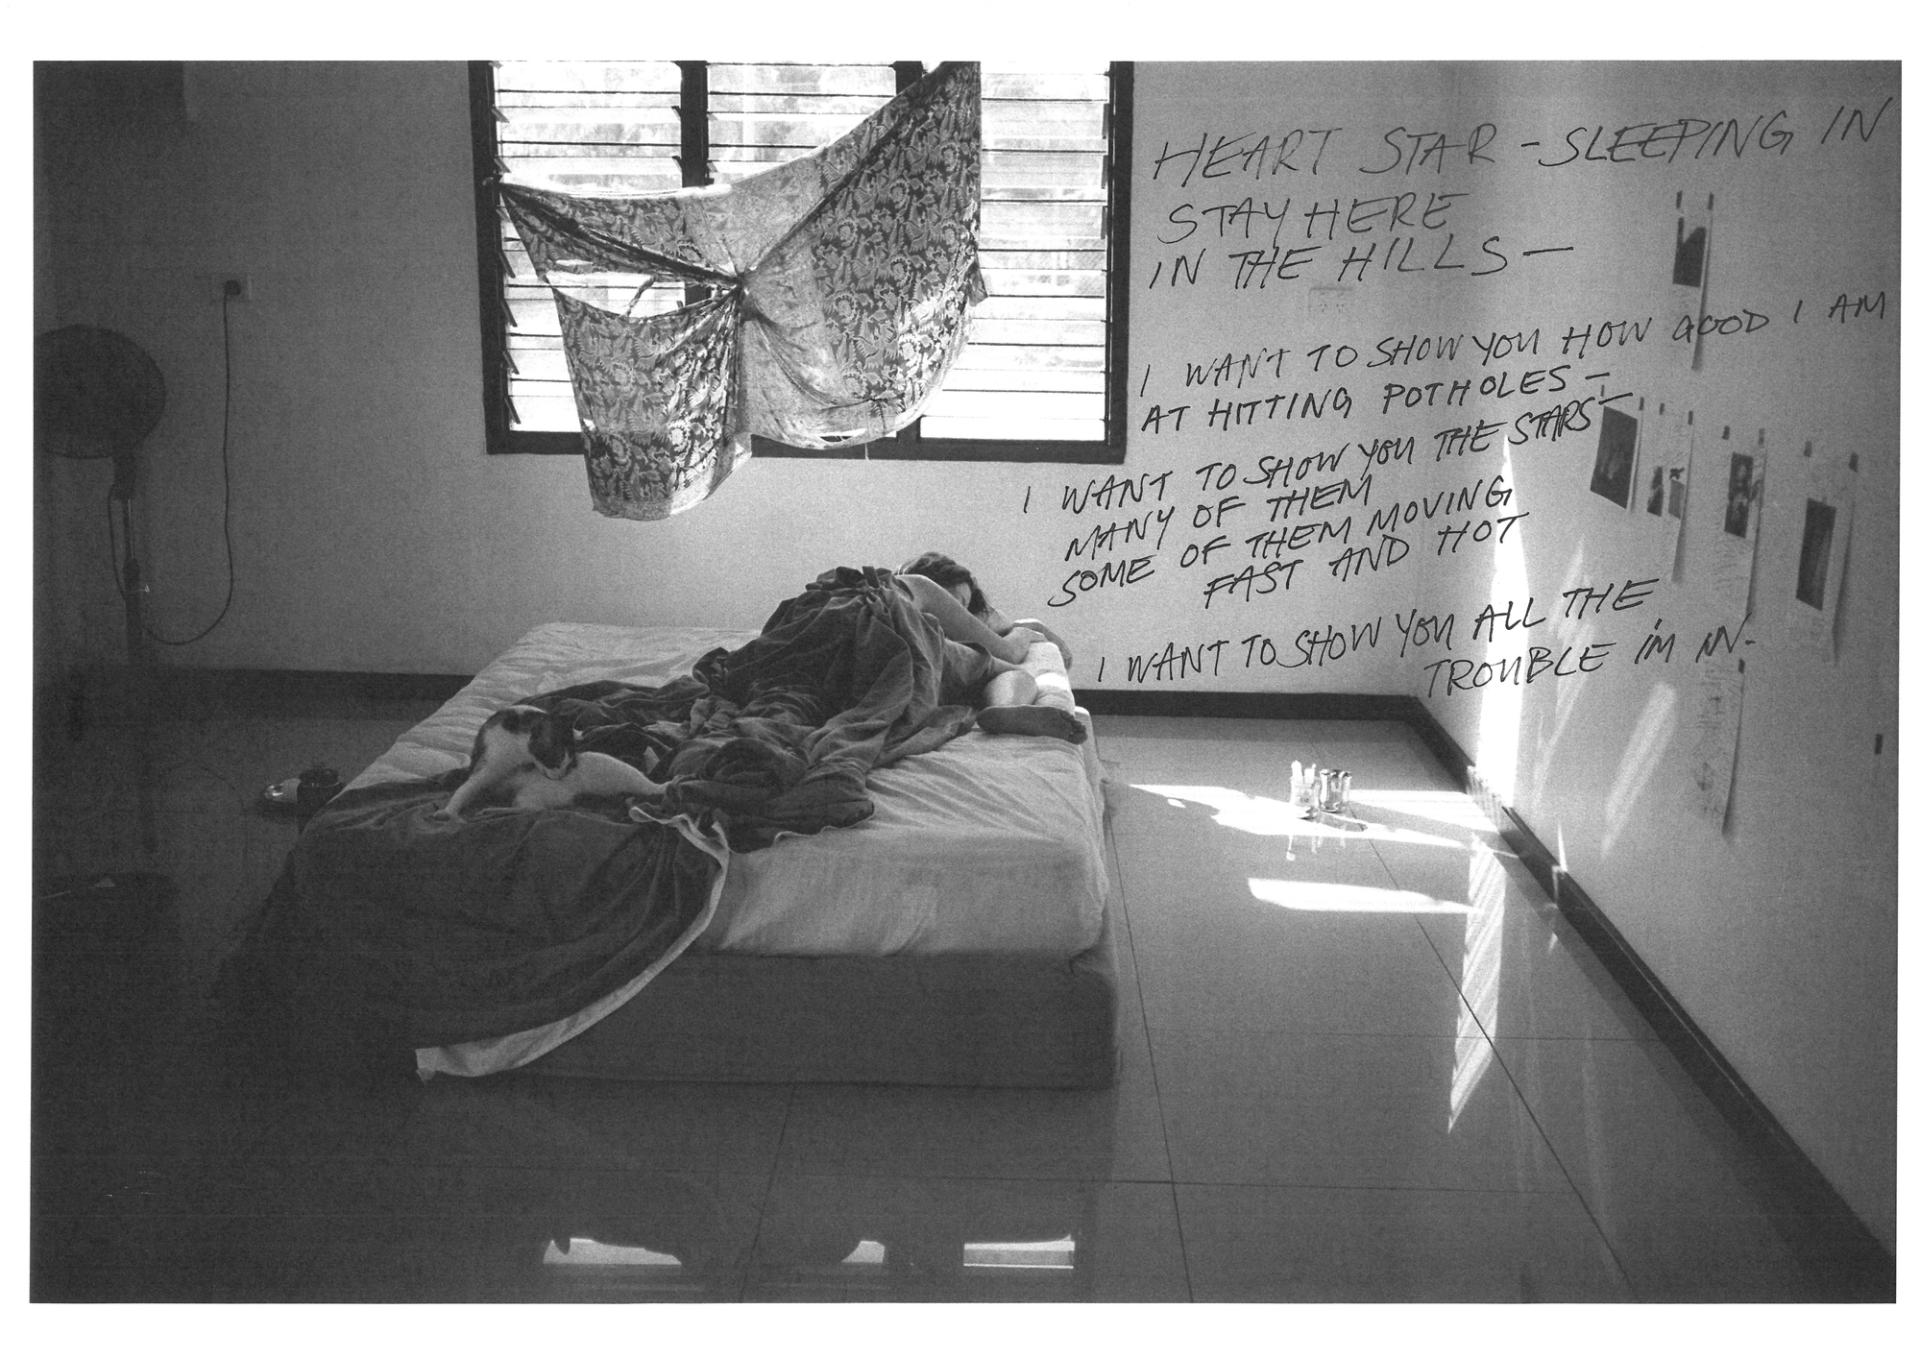 HEART STAR - SLEEPING IN
STAY HERE
IN THE HILLS —
I WANT TO SHOW YOU HOW GOOD I AM
AT HITTING POTHOLES —
I WANT TO SHOW YOU THE STARS —
MANY OF THEM
SOME OF THEM MOVING
FAST AND HOT
I WANT TO SHOW YOU ALL THE
TROUBLE I'M IN -